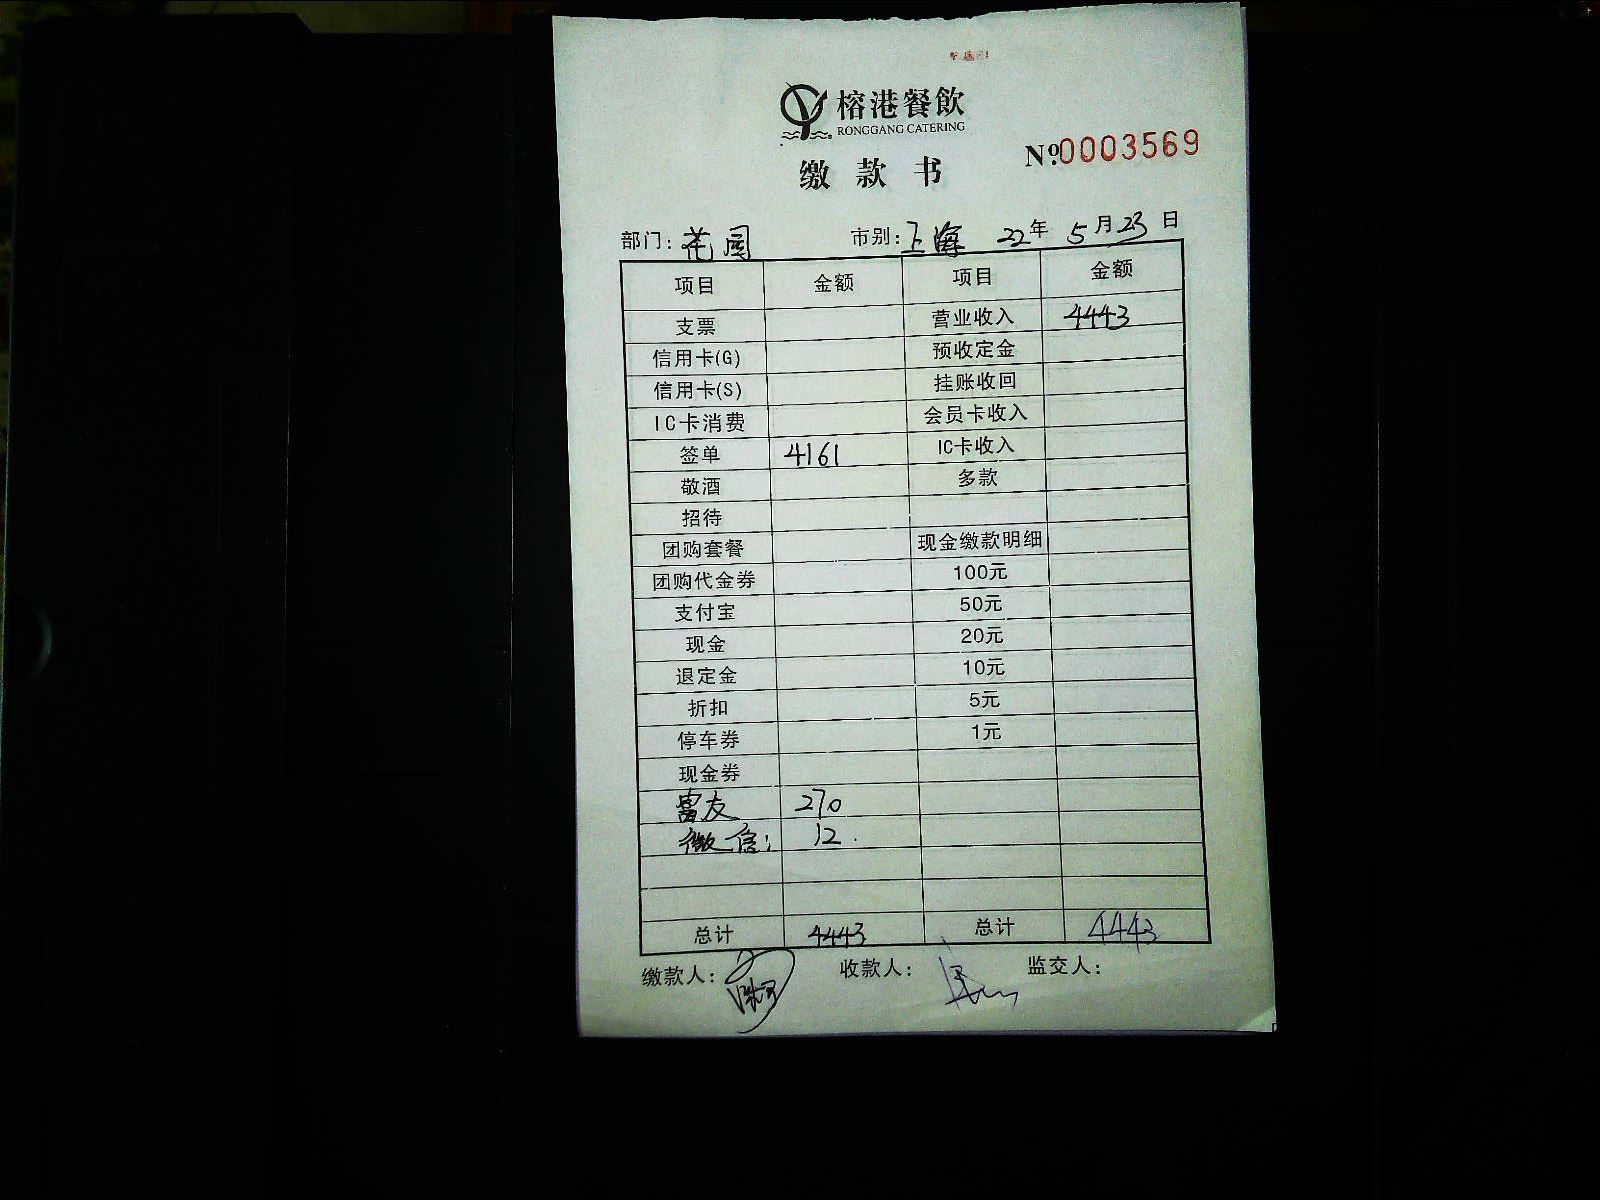 榕港餐飲
RONGGANG CATERING
缴款书
Nº.0003569
部门：花园 市别：上海 22年 5月23日
项目 金额 项目 金额
支票 营业收入 4443
信用卡(G) 预收定金
信用卡(S) 挂账收回
IC卡消费 会员卡收入
签单 4161 IC卡收入
敬酒 多款
招待
团购套餐 现金缴款明细
团购代金券 100元
支付宝 50元
现金 20元
退定金 10元
折扣 5元
停车券 1元
现金券
富友 270
微信： 12
总计 4443 总计 4443
缴款人： 收款人： 监交人：